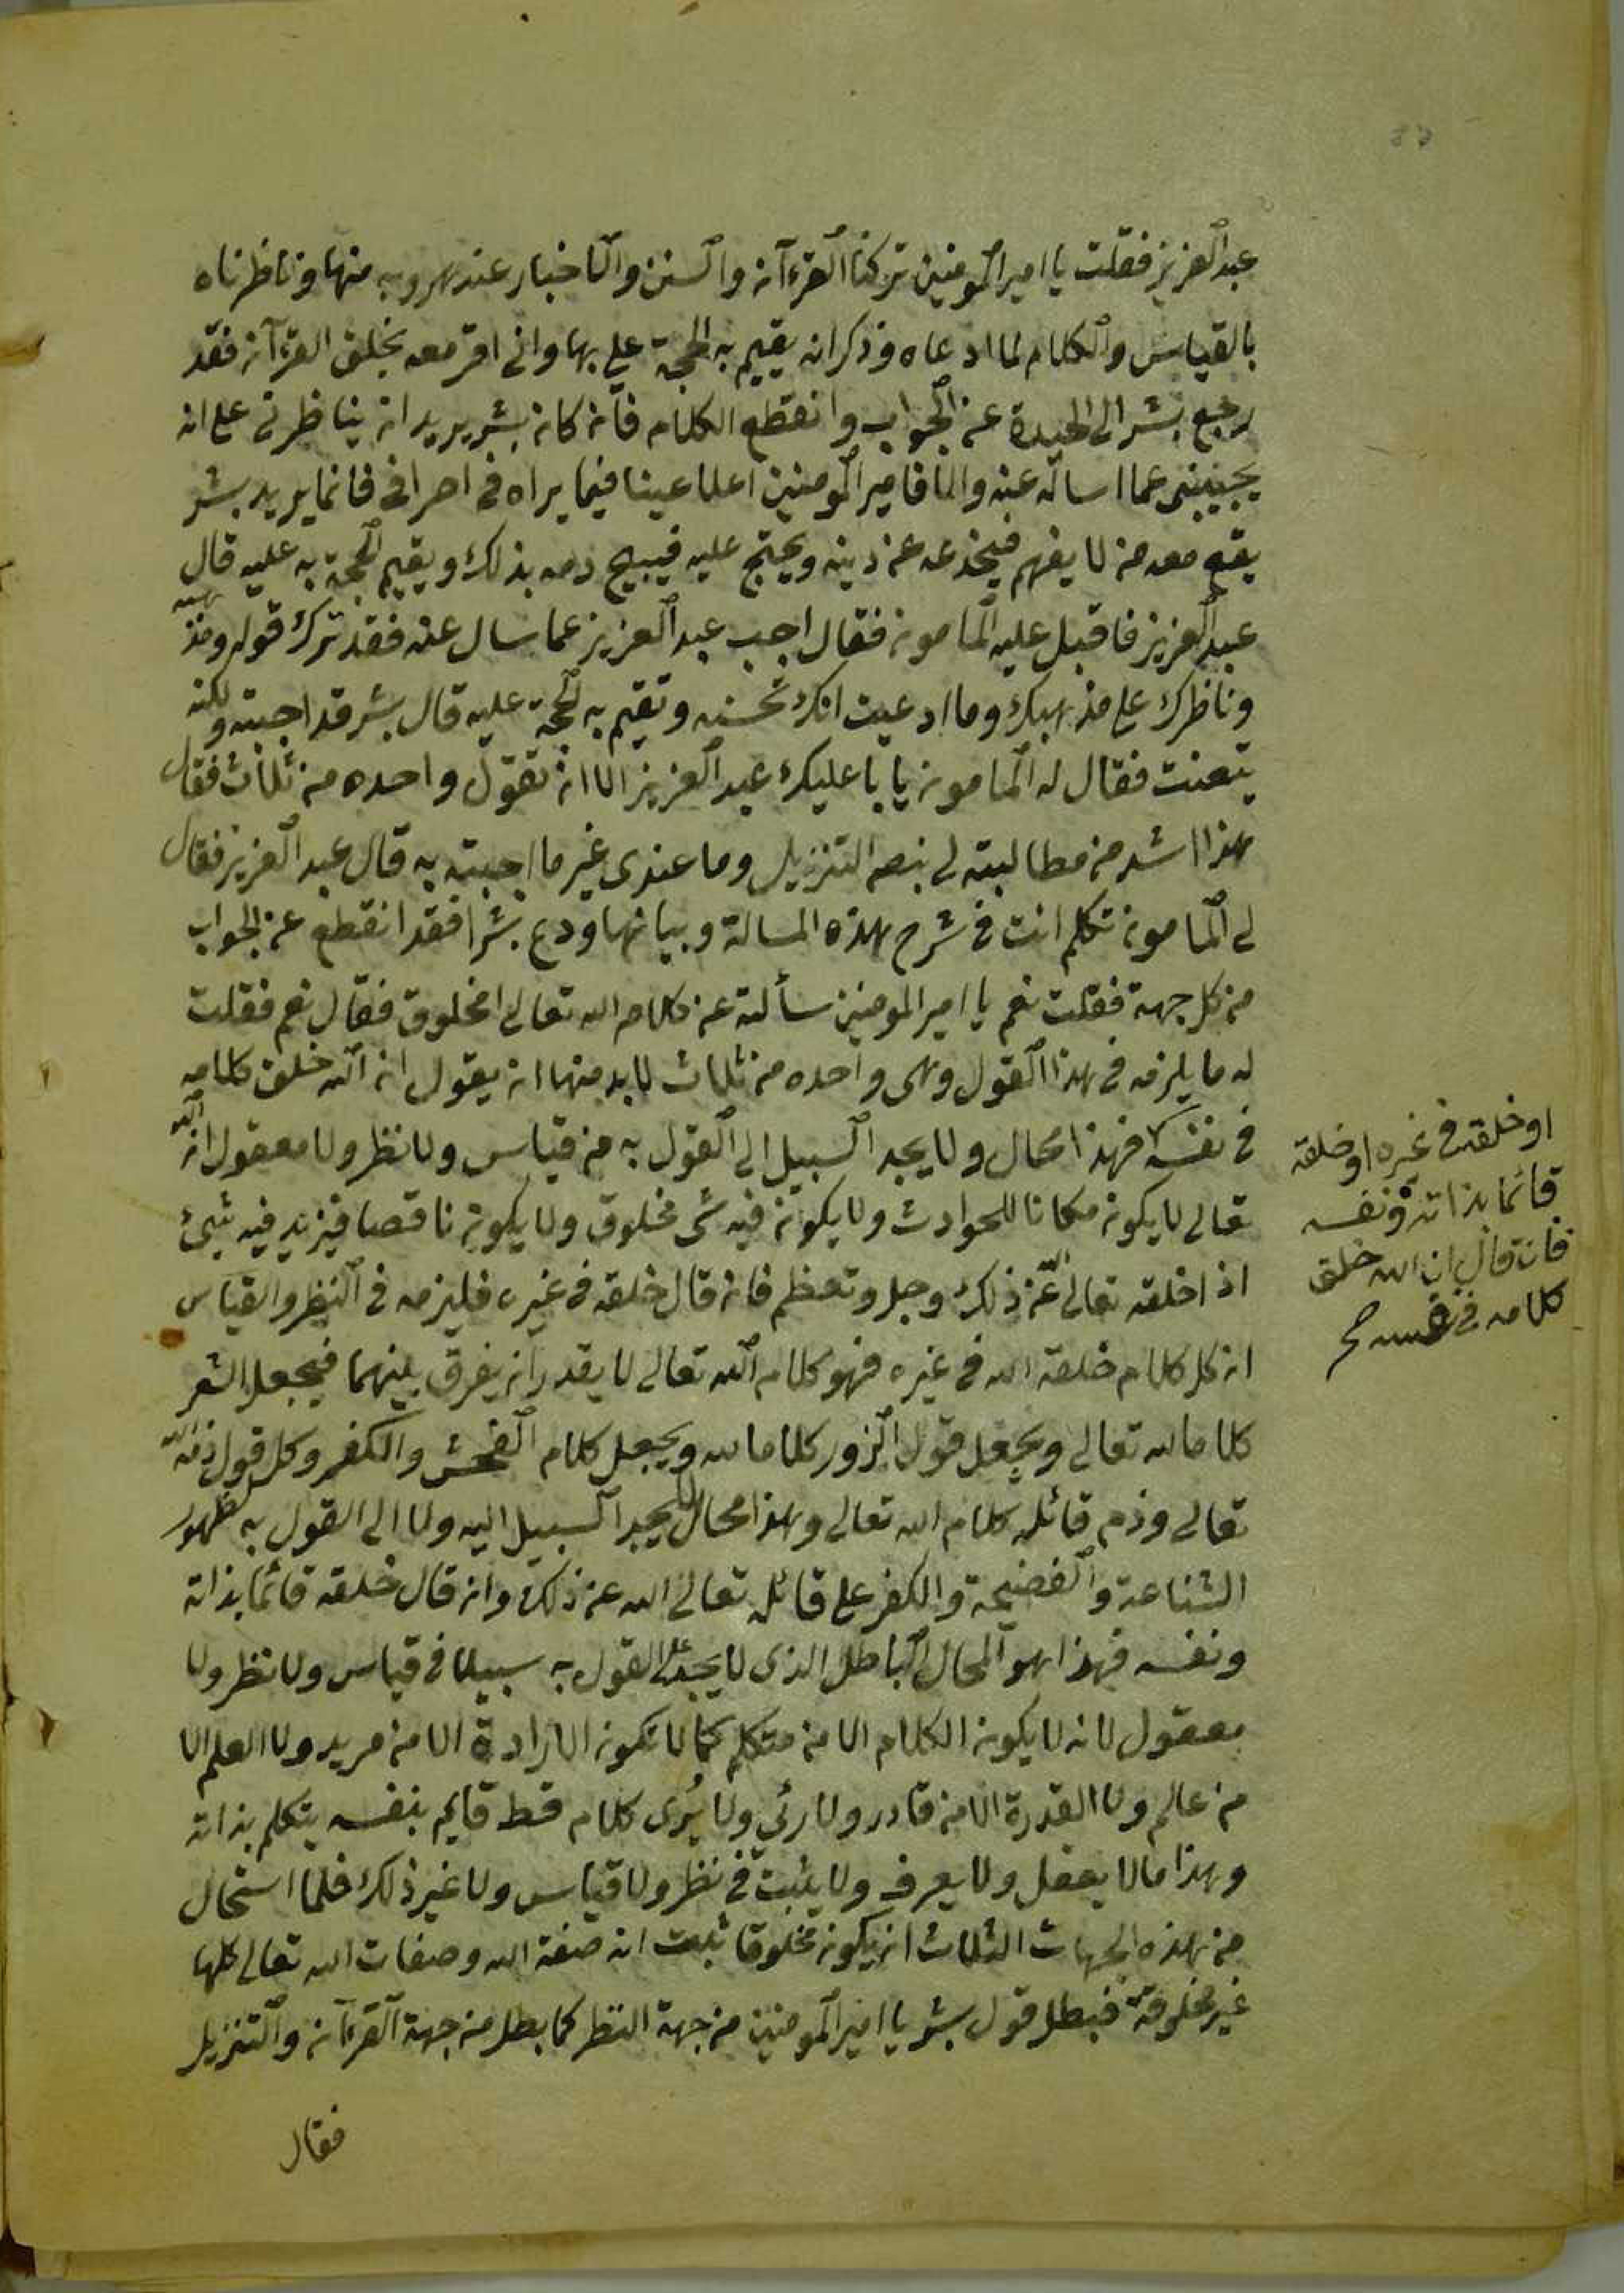 عبد العزيز فقلت يا امير المومنين تركنا القرءآن والسنن والاخبار عند هروبه منها وناظرناه
بالقياس والكلام لما ادعاه وذكر انه يقيم به الحجة علي بها واني اقر معه بخلق القرءآن فقد
رجع بشر الى الحيدة عن الجواب وانقطع الكلام فان كان بشر يريد ان يناظرني على انه
يجيبني عما اساله عنه والا فامير المومنين اعلا عينا فيما يراه في امرافي فانما يريد بشر
يقع معه من لا يفهم فيخدعه عن دينه ويحتج عليه فيبيح دمه بذلك ويقيم الحجة به عليه قال
عبد العزيز فاقبل عليه المامون فقال اجب عبد العزيز عما سال عنه فقد ترك قوله ومذهبه
وناظرك على مذهبك وما ادعيت انك تحسنه وتقيم به الحجة عليه قال بشر قد اجبته ولكنه
يتعنت فقال له المامون يابا عليك عبد العزيز الا ان تقول واحده من ثلاث فقال
هذا اشد من مطالبته لي بنص التنزيل وما عندي غير ما اجبته به قال عبد العزيز فقال
لي المامون تكلم انت في شرح هذه المسالة وبيانها ودع بشرا فقد انقطع عن الجواب
من كل جهة فقلت نعم يا امير المومنين سألته عن كلام الله تعالى امخلوق فقال نعم فقلت
له ما يلزمه في هذا القول وهي واحده من ثلاث لا بد منها ان يقول ان الله خلق كلامه
في نفسه فهذا محال ولا يجد السبيل الى القول به من قياس ولا نظر ولا معقول ان الله
تعالى لا يكون مكانا للحوادث ولا يكون فيه شى مخلوق ولا يكون ناقصا فيزيد فيه شيئ
اذا خلقه تعالى عن ذلك وجل وتعظم فان قال خلقه في غيره فليزمه في النظر والقياس
ان كل كلام خلقه الله في غيره فهو كلام الله تعالى لا يقدر ان يفرق بينهما فيجعل الشعر
كلاما لله تعالى ويجعل قول الزور كلاما لله ويجعل كلام الفحش والكفر وكل قول ذمه الله
تعالى وذم قائله كلام الله تعالى وهذا محال لا يجد السبيل اليه ولا الى القول به لظهور
الشناعة والفضيحة والكفر على قائله تعالى الله عن ذلك وان قال خلقه قائما بذاته
ونفسه فهذا هو المحال الباطل الذي لا يجد على القول به سبيلا في قياس ولا نظر ولا
معقول لانه لا يكون الكلام الا من متكلم كما لا تكون الارادة الا من مريد ولا العلم الا
من عالم ولا القدرة الا من قادر ولا رئي ولا يُرى كلام قط قايم بنفسه يتكلم بذاته
وهذا ما لا يعقل ولا يعرف ولا يثبت في نظر ولا قياس ولا غير ذلك فلما استحال
من هذه الجهات الثلاث ان يكون مخلوقا ثبت انه صفة الله وصفات الله تعالى كلها
غير مخلوقة فبطل قول بشر يا امير المومنين من جهة النظر كما بطل من جهة القرءآن والتنزيل
فقال
او خلقه في غيره او خلقه
قائما بذاته ونفسه
فان قال ان الله خلق
كلامه في نفسه صح